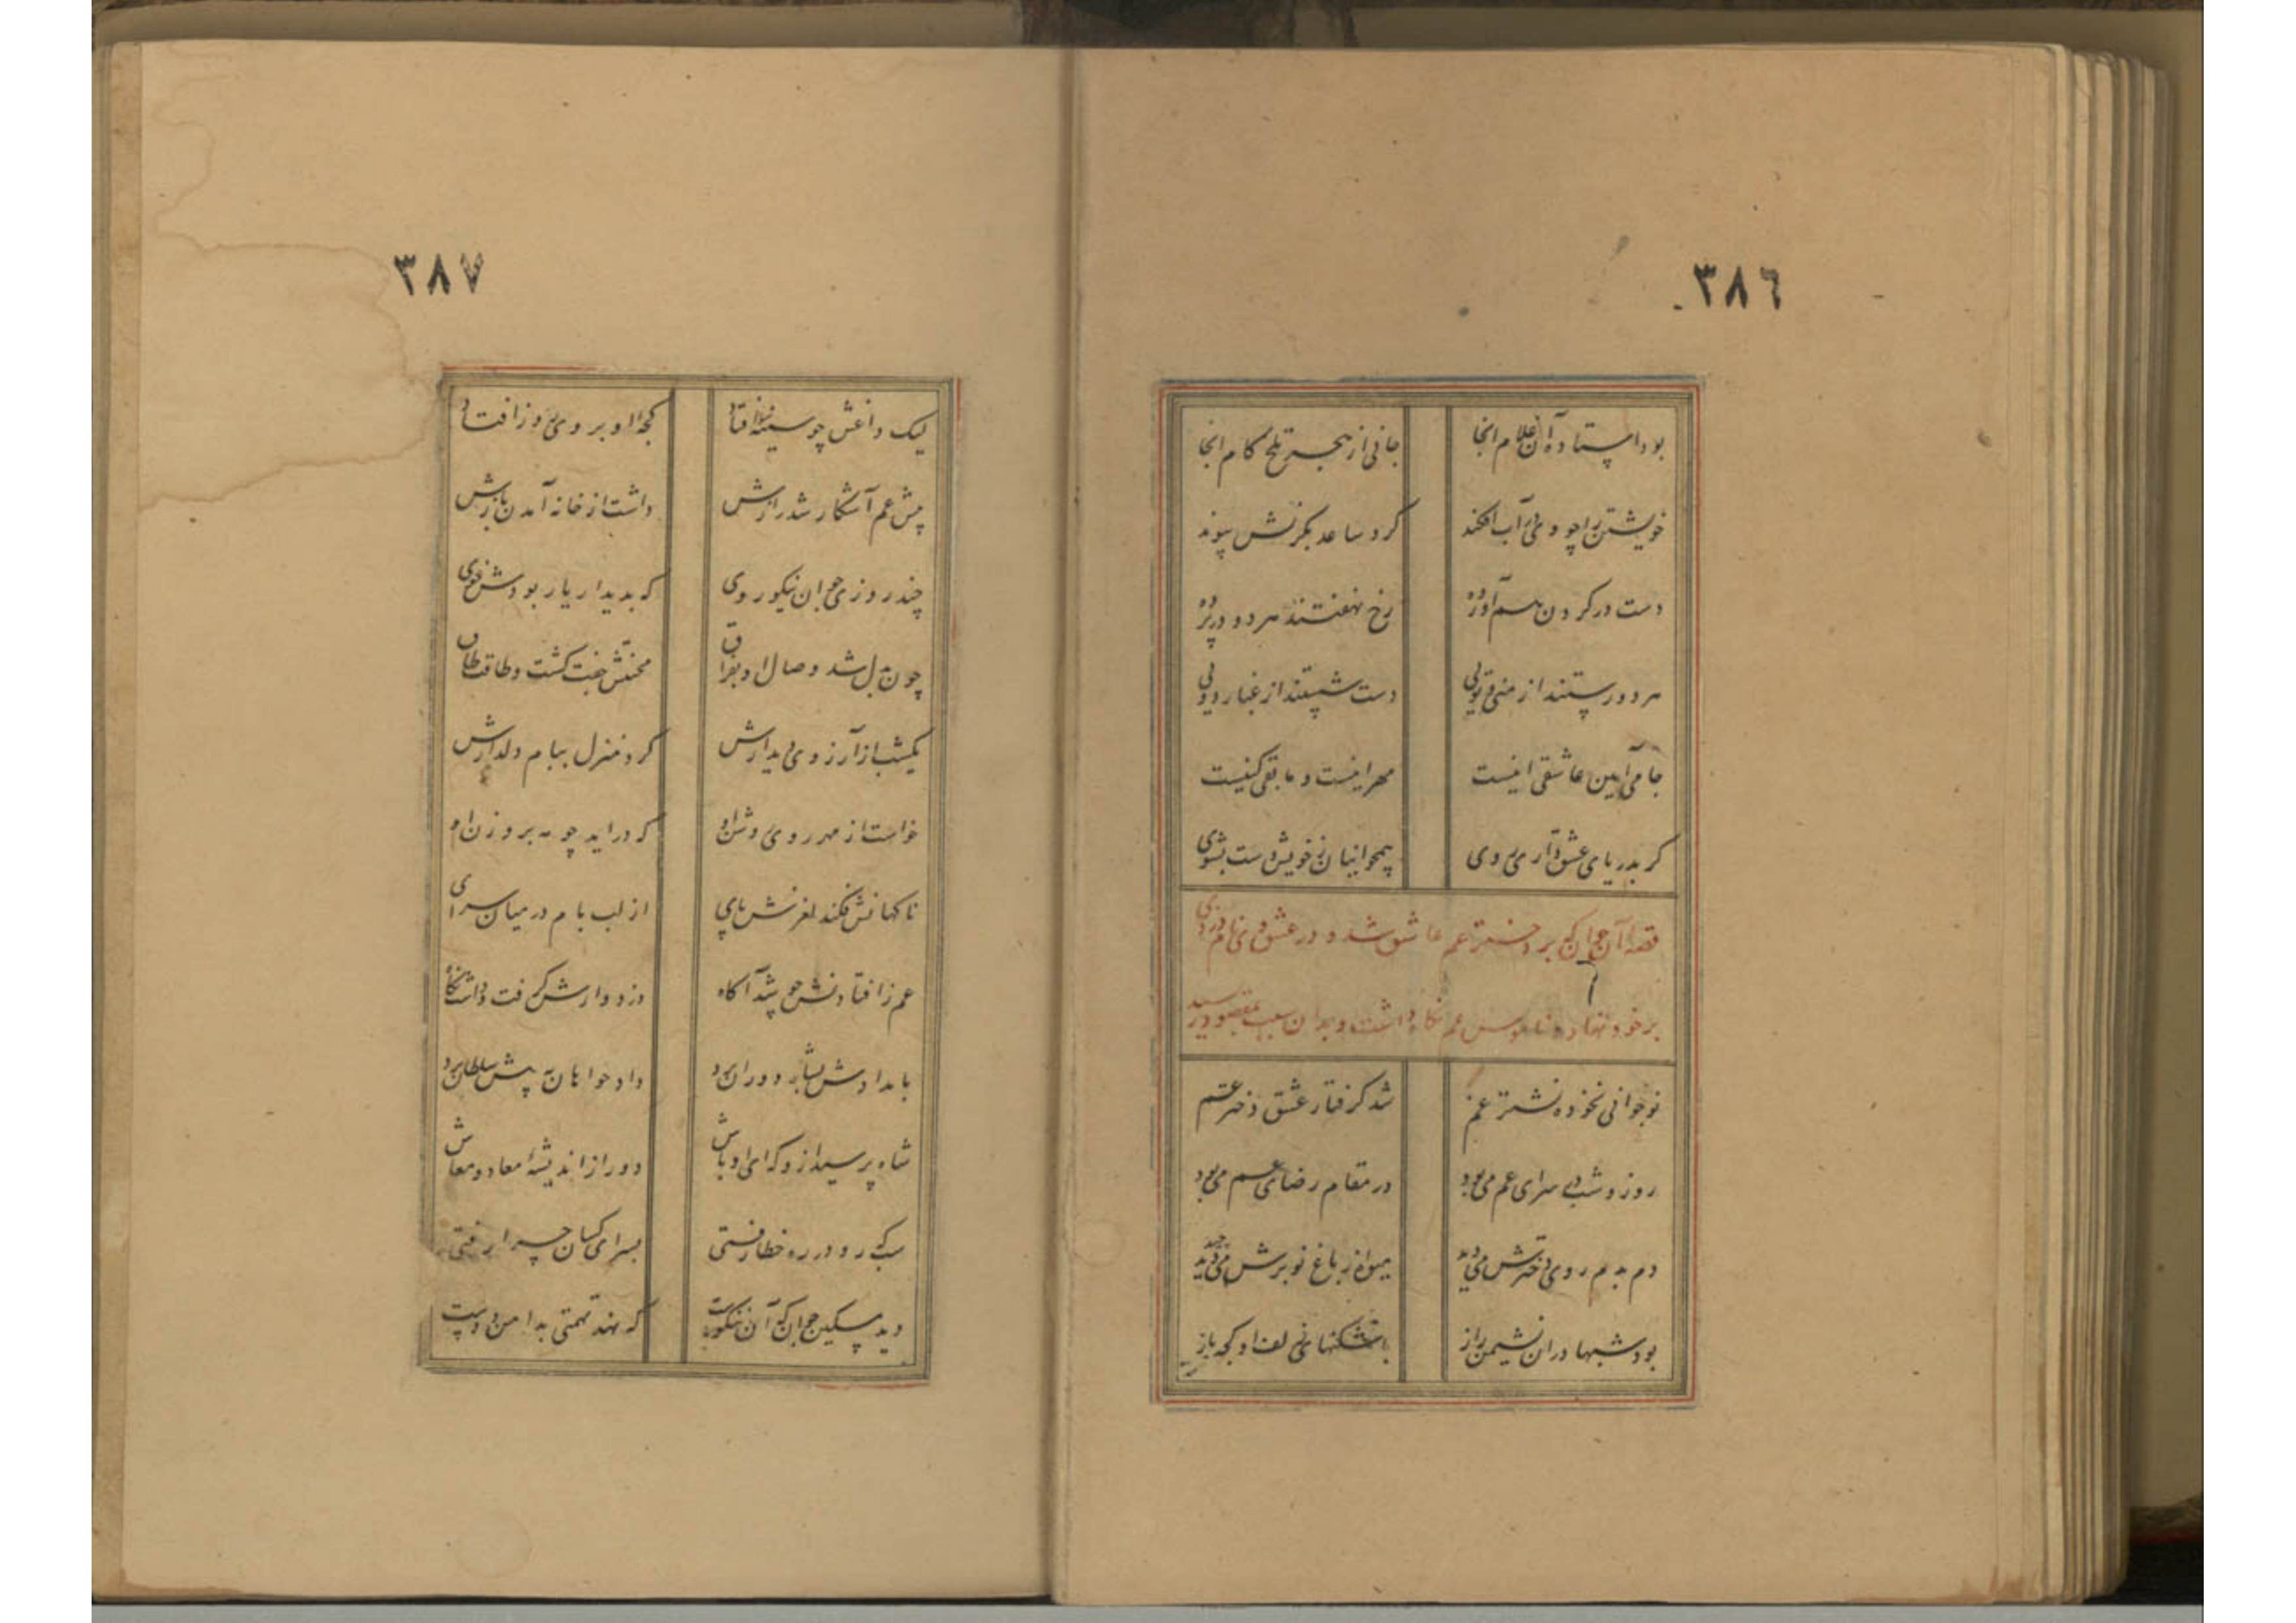 ٣٨٦
بود ایستاده آن غلام انجا جانی از هجر تلخ کام انجا
خویشتن را چو وی در آب افکند کرد ساعد بگردنش پیوند
دست در کردن هم آورده رخ نهفتند هر دو در پرده
هر دو رستند از منی و تویی دست شستند از غبار دویی
جامی آیین عاشقی اینست مهر اینست و مابقی کینست
کر بدریای عشق داری روی همچو اینان ز خویش دست بشوی
قصه آن جوان که بر دختر عم عاشق شد و در عشق وی نام دزدی
بر خود نهاد و ناموس عم نگاه داشت و بدان سبب بمقصود رسید
نوجوانی نخورده نشتر غم شد کرفتار عشق دختر عم
روز و شب در سرای عم می بود در مقام رضای عم می بود
دم بدم روی دخترش می دید میوه از باغ نو برش می چید
بود شبها در ان نشیمن راز با شکنهای زلف او کجه باز
٣٨٧
لیک داغش چو سینه سوز افتاد کجه او بروی روز افتاد
پیش عم آشکار شد رازش داشت از خانه آمدن بازش
چند روزی جوان نیکو روی که بدیدار یار بودش خوی
چون بدل شد وصال او بفراق محنتش جفت کشت و طاقت طاق
یکشب از آرزوی دیدارش کرد منزل ببام دلدارش
خواست از مهر روی روشن او که دراید چو مه بروزن او
ناکهانش فکند لغزش پای از لب بام در میان سرای
عم ز افتادنش چو شد آکاه دزدوارش کرفت و داشت نکاه
بامدادش بشاه دوران برد داد خواهانه پیش سلطان برد
شاه پرسید ازو که ای اوباش دور از اندیشه معاد و معاش
سبک رو در ره خطا رفتی بسرای کسان چرا رفتی
دید مسکین جوان که آن نه نکوست که نهد تهمتی بدامن دوست